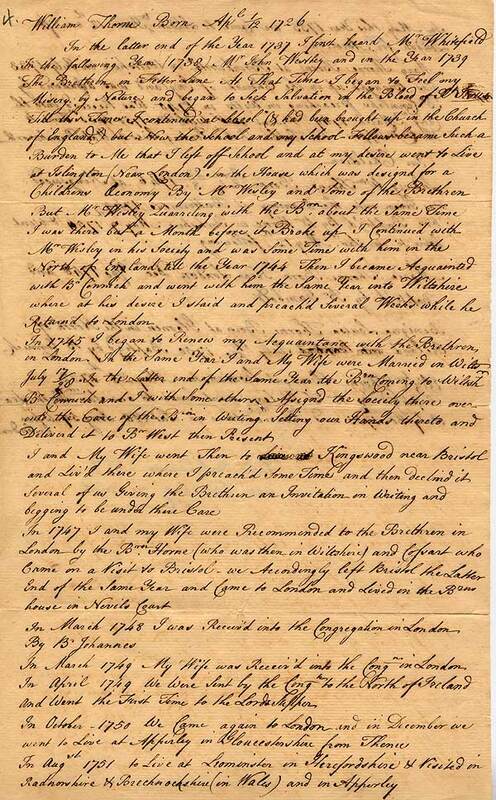 William Thorne Born Apl 1/12 1726
In the latter end of the Year 1737 I first heard Mr Whitefield
In the following Year (1738) Mr John Westley and in the Year 1739
The Brethren in Fetter Lane At That Time I began to Feel my
Misery by Nature and began to Seek Salvation in the Blood of
Till this Time I continued at School (& had been brought up in the Church
of England) but Now the School and my School Fellows became Such a
Burden to Me that I left off School and at my desire went to Live
at Islington (Near London) In the House which was design'd for a
Childrens Œconomy By Mr Wesley and Some of the Brethren
But Mr Wesley Quarreling with the Brn about the Same Time
I was there but a Month before it Broke up I Continued with
Mr Wesley in his Society and was Some Time with him in the
North of England till the Year 1744 Then I became Acquainted
with Br Cennick and went with him the Same Year into Wiltshire
where at his desire I staid and preach'd Several Weeks while he
Return'd to London
In 1745 I began to Renew my Acquaintance with the Brethren
in London In the Same Year I and My Wife were Married in Wilts
July In the Latter end of the Same Year the Brn Coming to Wiltsh
Br Cennick and I with Some others Assign'd the Society there over
into the Care of the Brn in Writing Setting our Hands thereto and
Deliver'd it to Br West then Present
I and My Wife went Then to Kingswood near Bristol
and Liv'd there where I preach'd Some Time and then declin'd it
Several of us Giving the Brethren an Invitation in Writing and
begging to be under there Care
In 1747 I and my Wife were Recommended to the Brethren in
London by the Brn Horne (who was then in Wiltshire) and Cossart who
Came on a Visit to Bristol - we Accordingly left Bristol the Latter
End of the Same Year and Came to London and Lived in the Brns
house in Nevils Court
In March 1748 I was Receiv'd into the Congregation in London
By Br Johannes
In March 1749 My Wife was Receiv'd into the Congn in London
In April 1749 We Were Sent by the Congn to the North of Ireland
And Went the First Time to the Lords Supper
In October - 1750 We Came again to London and in December we
went to Live at Apperley in Gloucestershire from Thence
In Augst 1751 to Live at Leominster in Herefordshire & Visited in
Radnorshire & Brecknockshire (in Wales) and in Apperley